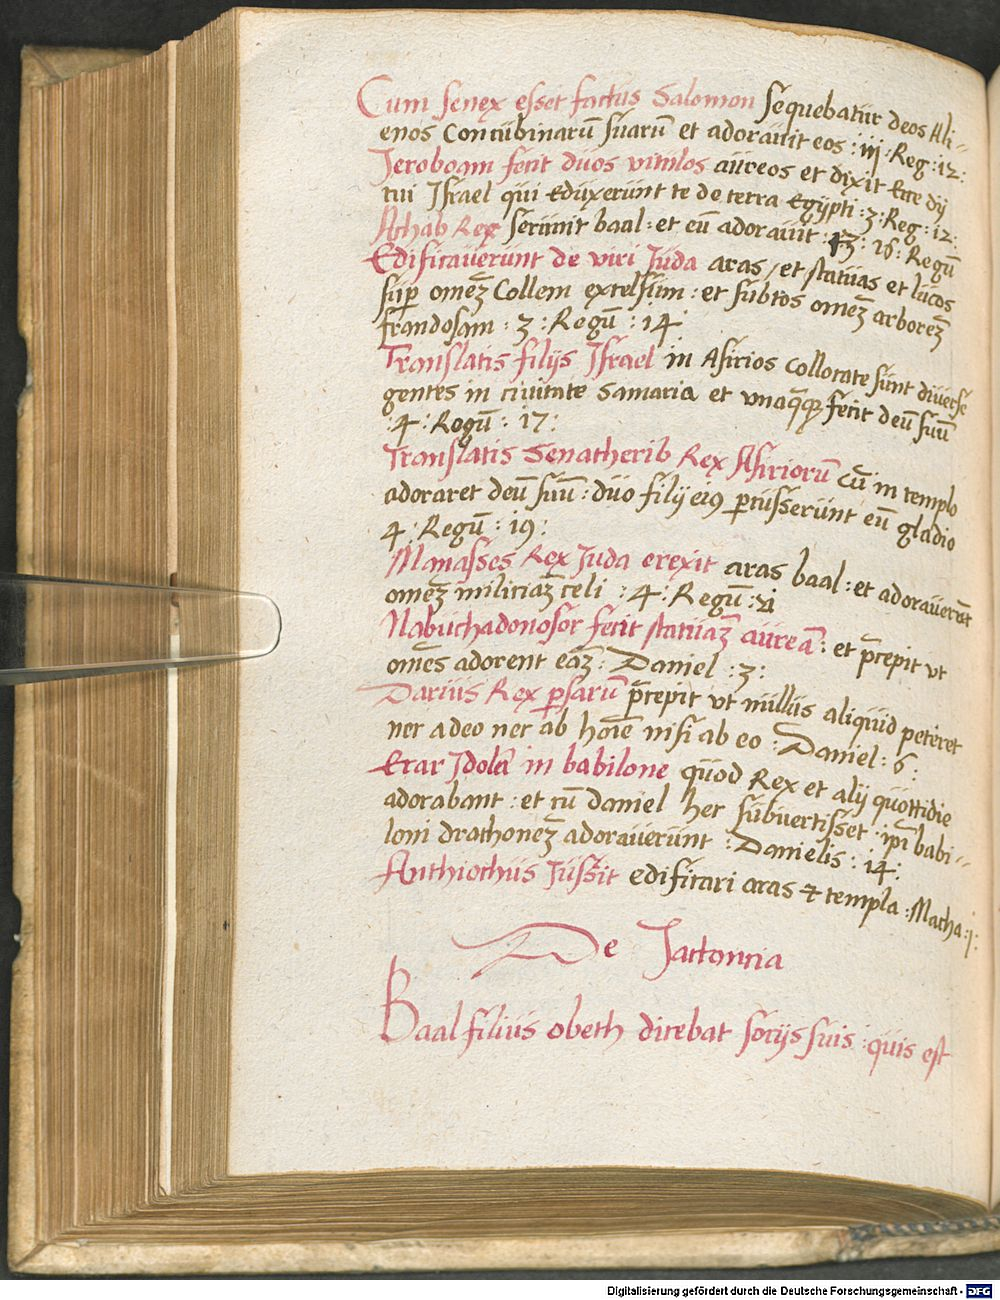 Cum senex esset factus Salomon sequebatur deos Ali-
enos Concubinarū suarū et adorauit eos : iij : Reg : 12 :
Jeroboam fecit duos vitulos aureos et dixit Ecce dij
tui Israel qui Eduxerunt te de terra Egypti : 3 : Reg : 12 :
Achab Rex seruiuit baal : et eū adorauit : 3 : 16 : Regū
Edificauerunt de viri Juda aras / et statuas et lucos
sup omēz Collem excelsum : et subtos omēz arborēz
frandosam : 3 : Regū : 14
Translatis filijs Israel in Asirios Collocate sunt diuerse
gentes in ciuitate Samaria et vnaq̄qȝ fecit deū suū
: 4 : Regū : 17 :
Translatis Senatherib Rex Asiriorū cū in templo
adoraret deū suū : duo filij eiꝰ ꝑcusserunt eū gladio
4 : Regū : 19 :
Manasses Rex Juda erexit aras baal : et adorauerūt
omēz miliciāz celi : 4 : Regū : 21
Nabuchadonosor fecit statuāz aureā : et p̄cepit vt
omēs adorent eāz : Daniel : 3 :
Darius Rex ꝑsarū p̄cepit vt nullus aliquid peteret
nec a deo nec ab hoīe nisi ab eo : Daniel : 6 :
Erat Jdolū in babilone quod Rex et alij quottidie
adorabant : et cū daniel hec subuertisset ipī babi-
loni drachonēz adorauerunt : Danielis : 14 :
Anthiochus Jussit edificari aras et templa : Macha : 1 :
De Jactancia
Baal filius obeth dicebat socijs suis : quis est
Digitalisierung gefördert durch die Deutsche Forschungsgemeinschaft - DFG